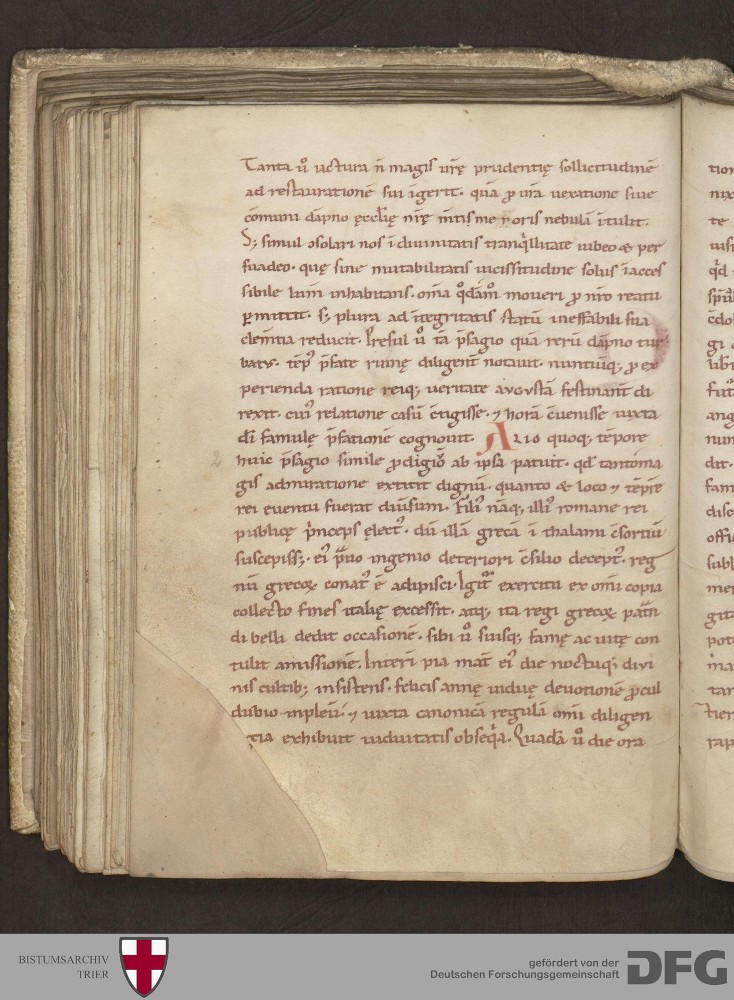 Tanta ů iactura ñ magis urę̃ prudentię sollicitudinē
ad restaurationē sui īgerit. quā ꝓ ura uexatione siue
cōmuni dāpno ęcclię nrę m̄tis me noris nebulā ītulit.
S; simul osolari nos ī diuinitatis tranq̇llitate iubeo & per
suadeo. quę sine mutabilitatis uicissitudine solus īacces
sibile lum̄ inhabitans. om̄a q̇dām̄ moueri ꝓ nr̄o reatu
ꝑmittit. s; plura ad ītegritatis statū ineffabili sua
clem̄tia reducit. Presul ů tā p̄sagio quā rerū dāpno tur
batus. tēp̄r p̄fate ruinę diligent̄ notauit. nuntiūq; ꝓ ex
perienda ratione reiq; ueritate avgvstā festinant̄ di
rexit. cuiꝰ relatione casū c̄tigisse. ⁊ horā c̄uenisse iuxta
dī famulę p̄fationē cognouit. Alio quoq; tēpore
huic p̄sagio simile ꝓdigiō ab ipsa patuit. qd̄ tantom̄a
gis admiratione extitit dignū. quanto & loco ⁊ tēpr̄e
rei euentu fuerat diuisum. Filiꝰ nāq; illiꝰ romane rei
publicę p̄nceps ęlectꝰ. dū illā grecā ī thalami c̄sortiū
suscepiss;. eiꝰ p̄uo ingenio deteriori c̄silio deceptꝰ. reg
nū grecoꝝ conatꝰ ē adipisci. Igit᷑ exercitu ex om̄i copia
collecto fines italię excessit. atq; ita regi grecoꝝ pat̄n
di belli dedit occasionē. sibi ů suisq; famę ac uitę con
tulit amissionē. Interī pia mat̄ eiꝰ die noctuq; divi
nis cultib; insistens. felicis annę uiduę deuotionē ꝓcul
dubio inpleiī. ⁊ iuxta canonicā regulā om̄i diligen
tia exhibuit uiduitatis obseq̇a. Quadā ů die ora
tion
nix
te
uisi
qd̄
gi
libr
fut
ang
nun
dit.
fam
disc
offic
subl
mer
git
pot
ma
tan
tier
rap
BISTUMSARCHIV
TRIER
gefördert von der
Deutschen Forschungsgemeinschaft
DFG